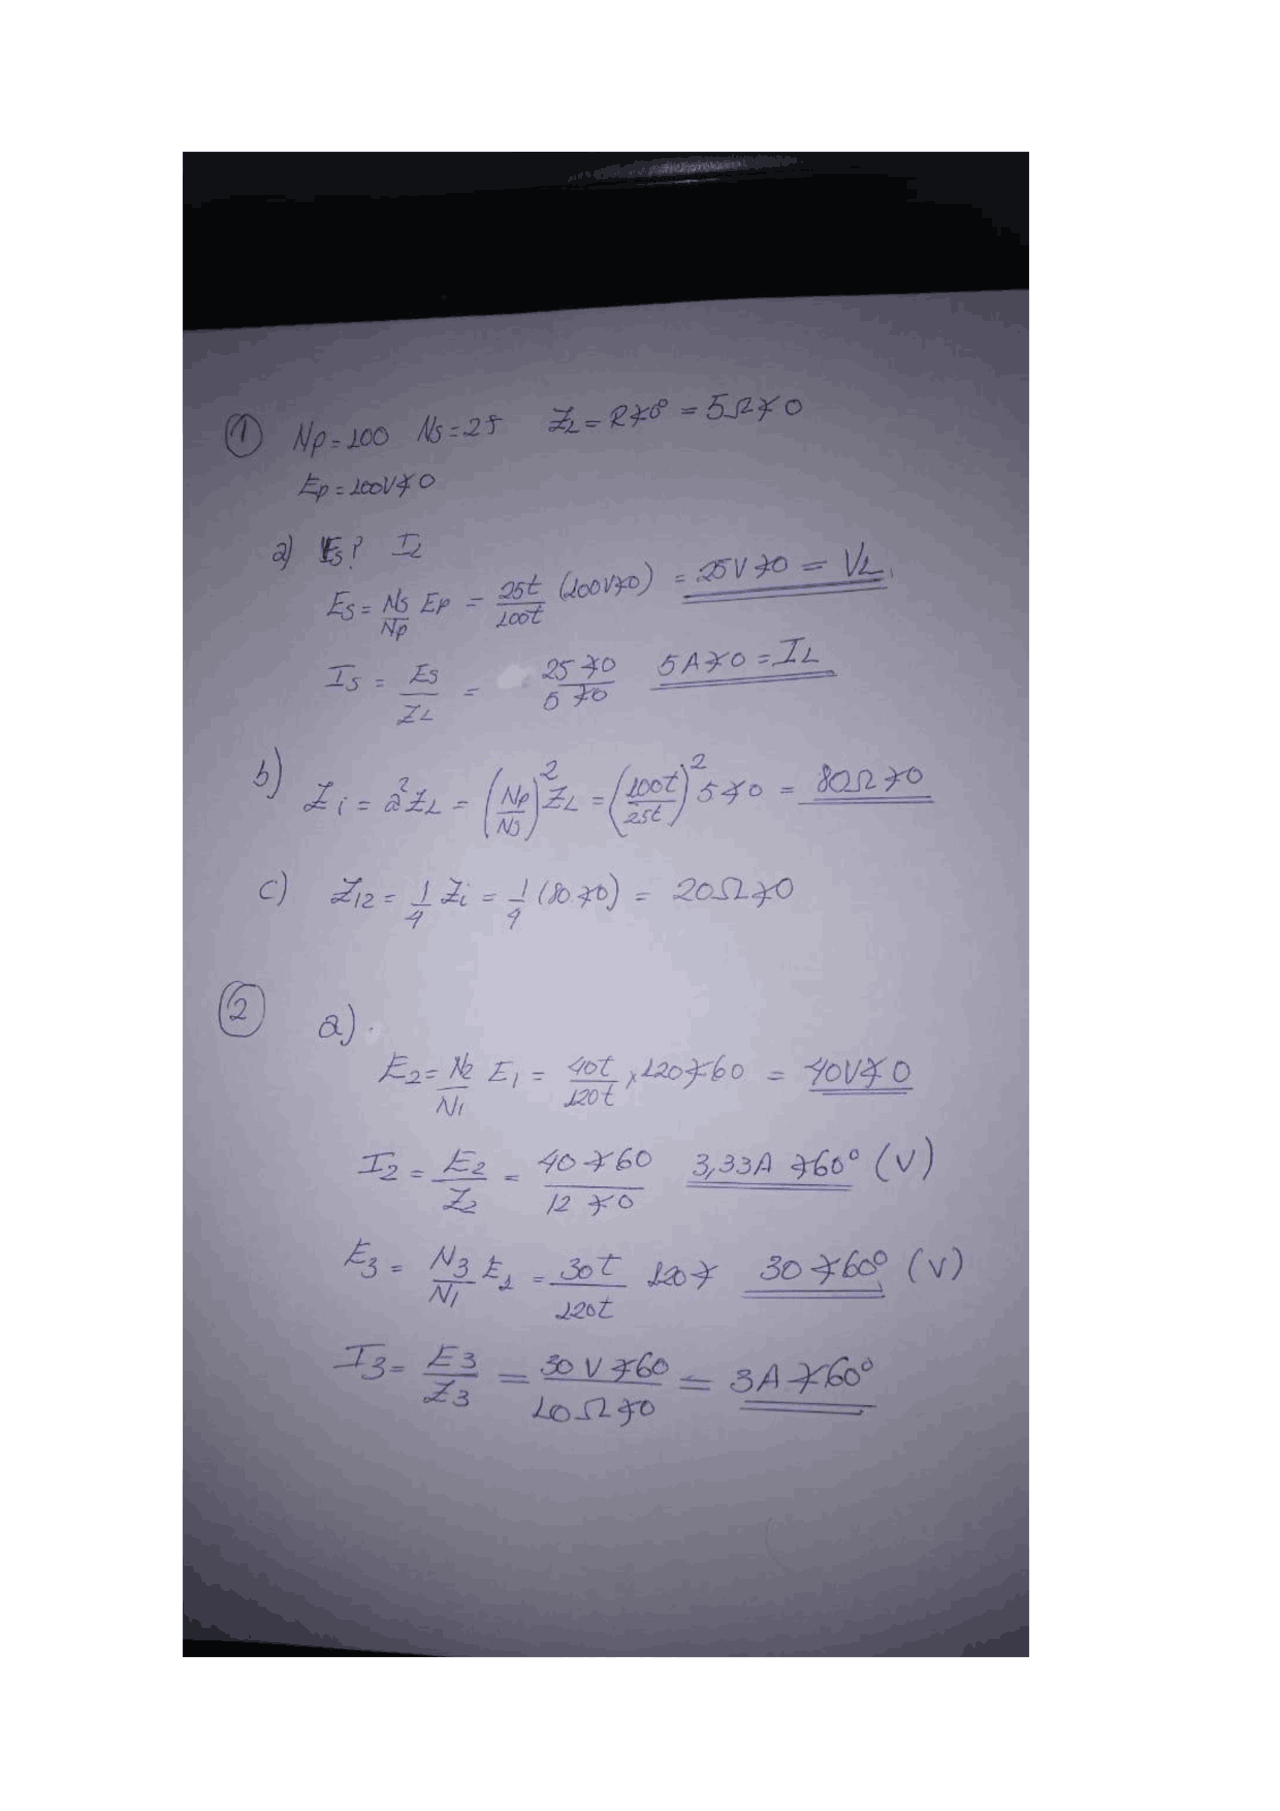 ① Np=100 Ns=25 ZL=R∡0° =5Ω∡0
Ep=100V∡0
a) Es? IL
Es = Ns/Np Ep = 25t/100t (100V∡0) = 25V∡0 = VL
Is = Es/ZL = 25∡0/5∡0 5A∡0 = IL
b) Zi = a²ZL = (Np/Ns)² ZL = (100t/25t)² 5∡0 = 80Ω∡0
c) Z12 = 1/4 Zi = 1/4 (80∡0) = 20Ω∡0
② a).
E2 = N2/N1 E1 = 40t/120t x 120∡60 = 40V∡0
I2 = E2/Z2 = 40∡60/12∡0 3,33A ∡60° (V)
E3 = N3/N1 E1 = 30t/120t 120∡ 30∡60° (V)
I3 = E3/Z3 = 30V∡60/10Ω∡0 = 3A∡60°